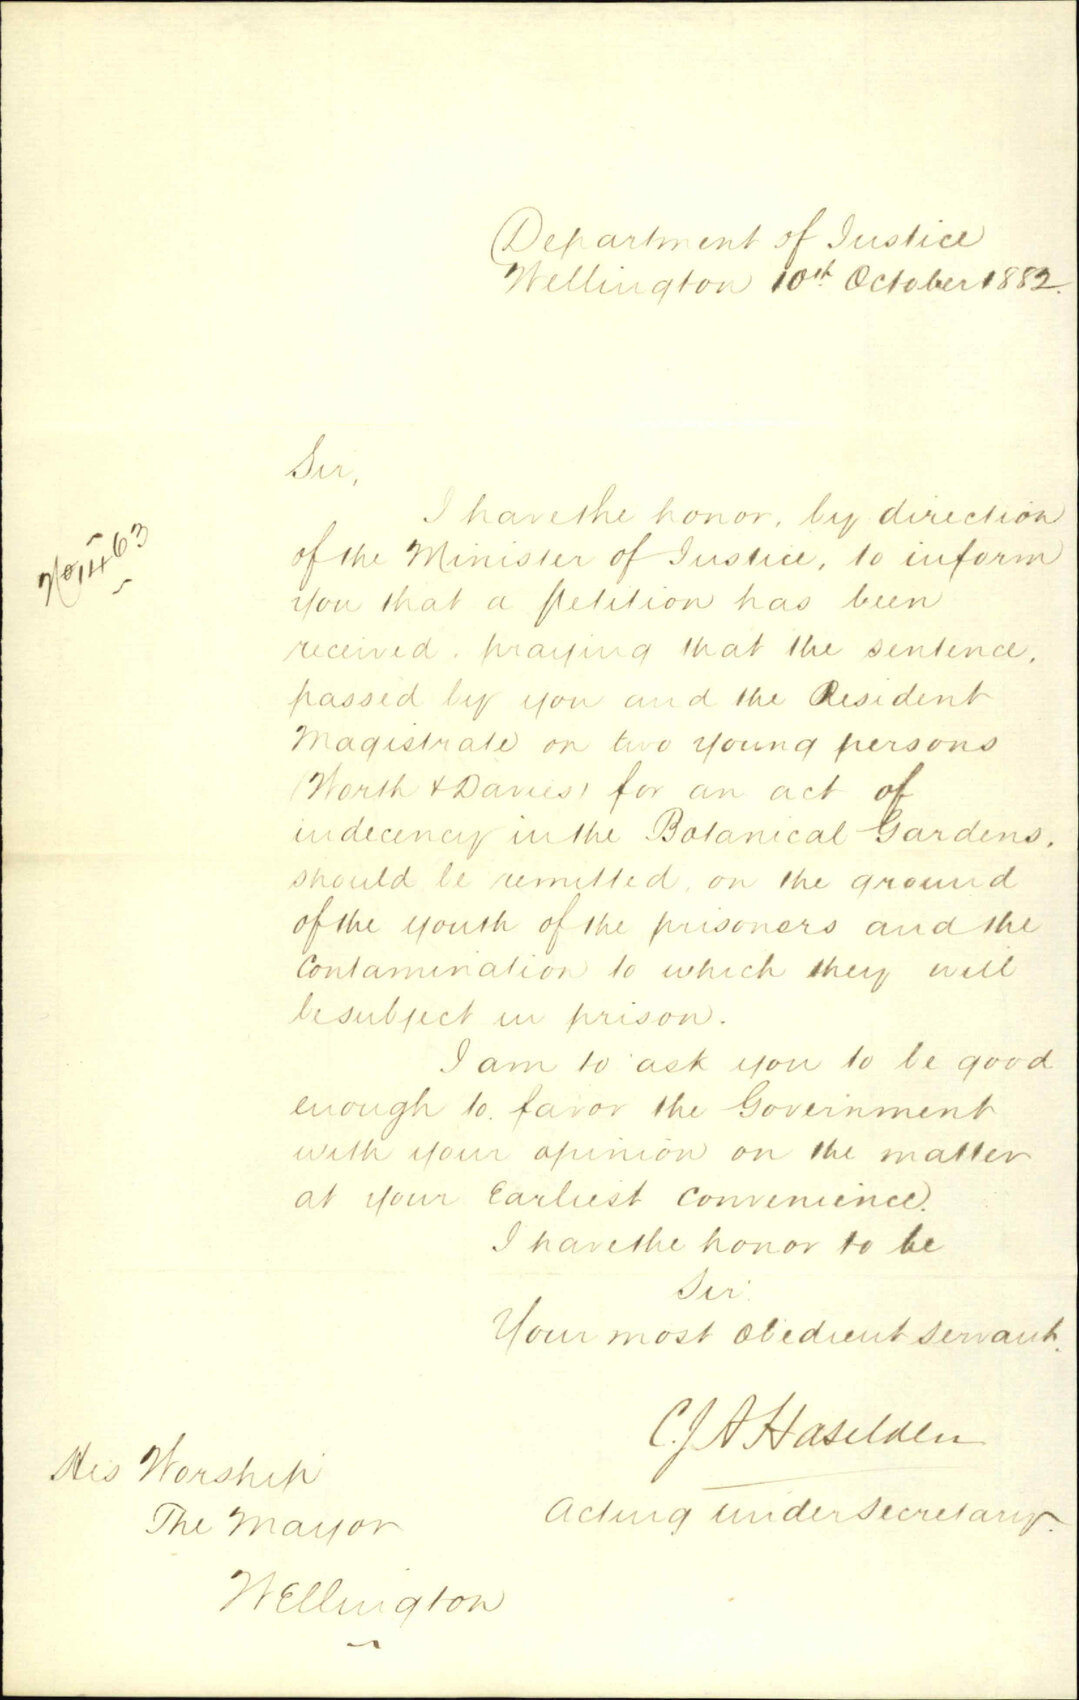 Department of Justice
Wellington 10th October 1882.
Sir,
I have the honor, by direction
of the Minister of Justice, to inform
you that a petition has been
received, praying that the sentence,
passed by you and the Resident
Magistrate on two young persons
(Worth & Davies) for an act of
indecency in the Botanical Gardens,
should be remitted, on the ground
of the youth of the prisoners and the
contamination to which they will
be subject in prison.
I am to ask you to be good
enough to favor the Government
with your opinion on the matter
at your Earliest convenience.
I have the honor to be
Sir
Your most obedient servant.
C.J.A Haselden
Acting under Secretary.
No 1463
His Worship
The Mayor
Wellington